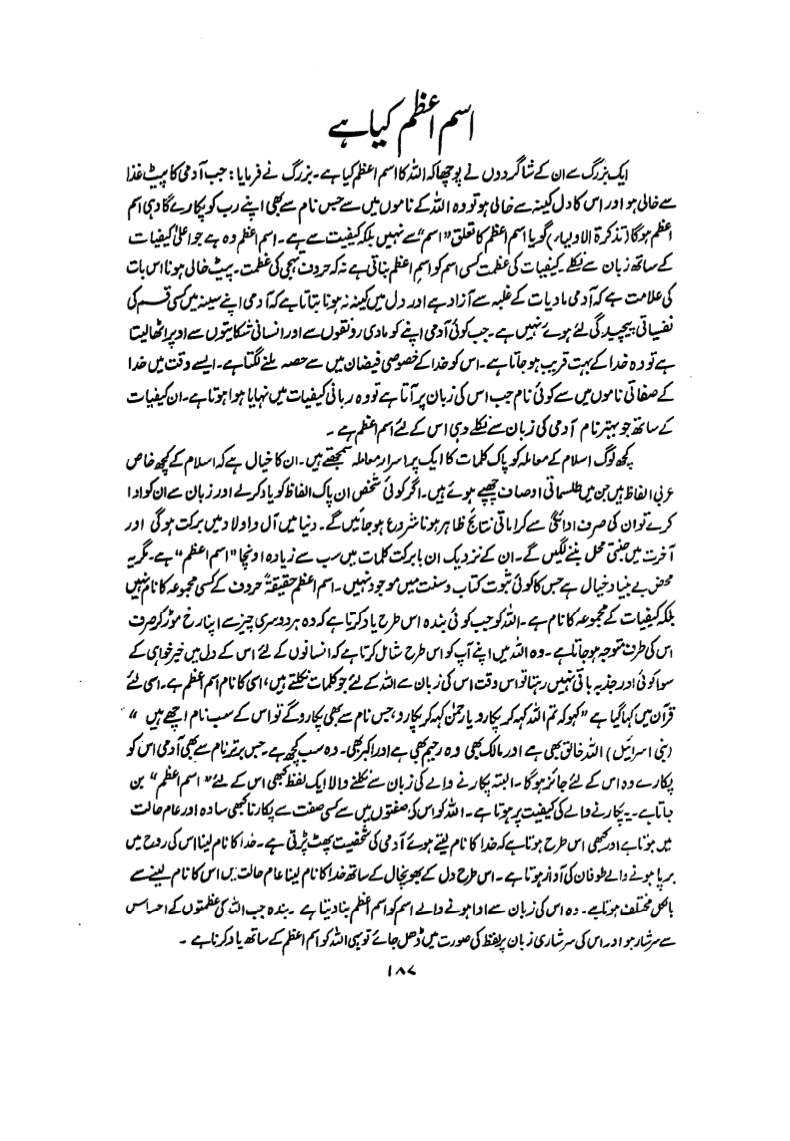 اسم اعظم کیا ہے
ایک بزرگ سے ان کے شاگردوں نے پوچھا کہ اللہ کا اسم اعظم کیا ہے۔ بزرگ نے فرمایا : جب آدمی کا پیٹ غذا
سے خالی ہو اور اس کا دل کینہ سے خالی ہو تو وہ اللہ کے ناموں میں سے جس نام سے بھی اپنے رب کو پکارے گا وہی اسم
اعظم ہوگا (تذکرۃ الاولیاء) گویا اسم اعظم کا تعلق "اسم" سے نہیں بلکہ کیفیت سے ہے۔ اسم اعظم وہ ہے جو اعلیٰ کیفیات
کے ساتھ زبان سے نکلے۔ کیفیات کی عظمت کسی اسم کو اسم اعظم بناتی ہے نہ کہ حروف تہجی کی عظمت۔ پیٹ خالی ہونا اس بات
کی علامت ہے کہ آدمی مادیات کے غلبہ سے آزاد ہے اور دل میں کینہ نہ ہونا بتاتا ہے کہ آدمی اپنے سینہ میں کسی قسم کی
نفسیاتی پیچیدگی لئے ہوئے نہیں ہے۔ جب کوئی آدمی اپنے کو مادی رونقوں سے اور انسانی شکایتوں سے اوپر اٹھا لیتا
ہے تو وہ خدا کے بہت قریب ہو جاتا ہے۔ اس کو خدا کے خصوصی فیضان میں سے حصہ ملنے لگتا ہے۔ ایسے وقت میں خدا
کے صفاتی ناموں میں سے کوئی نام جب اس کی زبان پر آتا ہے تو وہ ربانی کیفیات میں نہایا ہوا ہوتا ہے۔ ان کیفیات
کے ساتھ جو بہتر نام آدمی کی زبان سے نکلے وہی اس کے لئے اسم اعظم ہے ۔
کچھ لوگ اسلام کے معاملہ کو پاک کلمات کا ایک پراسرار معاملہ سمجھتے ہیں۔ ان کا خیال ہے کہ اسلام کے کچھ خاص
عربی الفاظ ہیں جن میں طلسماتی اوصاف چھپے ہوئے ہیں۔ اگر کوئی شخص ان پاک الفاظ کو یاد کرلے اور زبان سے ان کو ادا
کرے تو ان کی صرف ادائگی سے کراماتی نتائج ظاہر ہونا شروع ہو جائیں گے۔ دنیا میں آل و اولاد میں برکت ہوگی اور
آخرت میں جنتی محل بننے لگیں گے۔ ان کے نزدیک ان بابرکت کلمات میں سب سے زیادہ اونچا "اسم اعظم" ہے۔ مگر یہ
محض بے بنیاد خیال ہے جس کا کوئی ثبوت کتاب و سنت میں موجود نہیں۔ اسم اعظم حقیقۃً حروف کے کسی مجموعہ کا نام نہیں
بلکہ کیفیات کے مجموعہ کا نام ہے۔ اللہ کو جب کوئی بندہ اس طرح یاد کرتا ہے کہ وہ ہر دوسری چیز سے اپنا رخ موڑ کر صرف
اس کی طرف متوجہ ہو جاتا ہے۔ وہ اللہ میں اپنے آپ کو اس طرح شامل کرتا ہے کہ انسانوں کے لئے اس کے دل میں خیر خواہی کے
سوا کوئی اور جذبہ باقی نہیں رہتا تو اس وقت اس کی زبان سے اللہ کے لئے جو کلمات نکلتے ہیں، اسی کا نام اسم اعظم ہے۔ اسی لئے
قرآن میں کہا گیا ہے "کہو کہ تم اللہ کہہ کر پکارو یا رحمٰن کہہ کر پکارو، جس نام سے بھی پکارو گے تو اس کے سب نام اچھے ہیں "
(بنی اسرائیل) اللہ خالق بھی ہے اور مالک بھی وہ رحیم بھی ہے اور اکبر بھی۔ وہ سب کچھ ہے۔ جس برتر نام سے بھی آدمی اس کو
پکارے وہ اس کے لئے جائز ہوگا۔ البتہ پکارنے والے کی زبان سے نکلنے والا ایک لفظ کبھی اس کے لئے "اسم اعظم" بن
جاتا ہے۔ یہ پکارنے والے کی کیفیت پر ہوتا ہے۔ اللہ کو اس کی صفتوں میں سے کسی صفت سے پکارنا کبھی سادہ اور عام حالت
میں ہوتا ہے اور کبھی اس طرح ہوتا ہے کہ خدا کا نام لیتے ہوئے آدمی کی شخصیت پھٹ پڑتی ہے۔ خدا کا نام لینا اس کی روح میں
برپا ہونے والے طوفان کی آواز ہوتا ہے۔ اس طرح دل کے بھونچال کے ساتھ خدا کا نام لینا عام حالت میں اس کا نام لینے سے
بالکل مختلف ہوتا ہے۔ وہ اس کی زبان سے ادا ہونے والے اسم کو اسم اعظم بنا دیتا ہے ۔ بندہ جب اللہ کی عظمتوں کے احساس
سے سرشار ہو اور اس کی سرشاری زبان پر لفظ کی صورت میں ڈھل جائے تو یہی اللہ کو اسم اعظم کے ساتھ یاد کرنا ہے ۔
۱۸۷